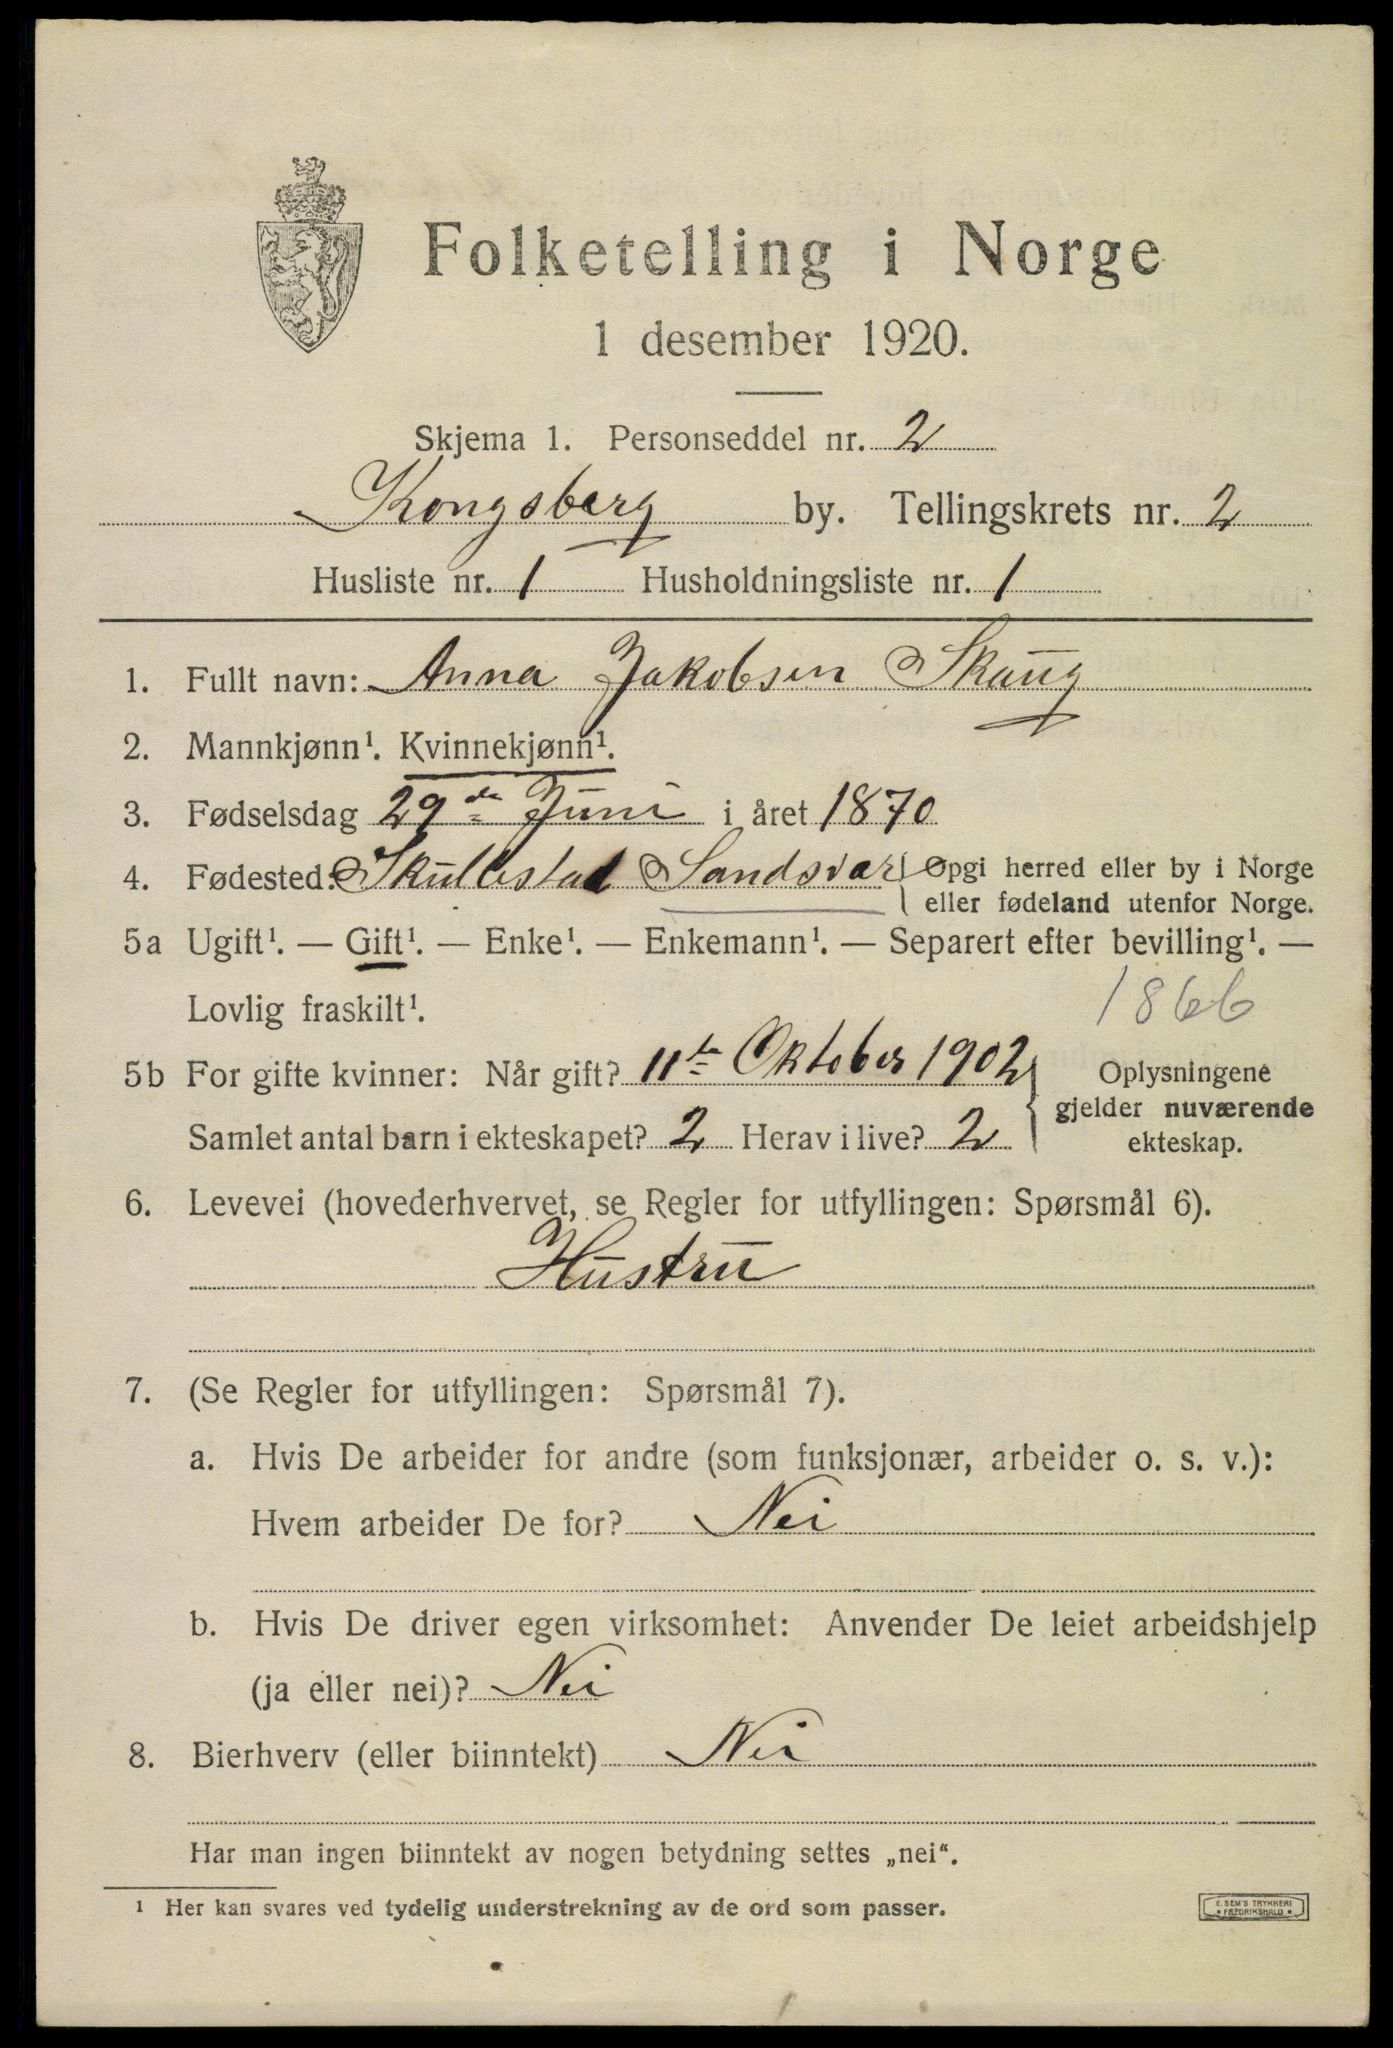 Folketelling i Norge
1 desember 1920.
Skjema 1. Personseddel nr. 2
Kongsberg by. Tellingskrets nr. 2
Husliste nr. 1 Husholdningsliste nr. 1
1. Fullt navn: Anna Jakobsen Skaug
2. Mannkjønn¹. Kvinnekjønn¹.
3. Fødselsdag 29de Juni i året 1870
4. Fødested: Skullestad Sandsvær Opgi herred eller by i Norge
eller fødeland utenfor Norge.
5a Ugift¹. — Gift¹. — Enke¹. — Enkemann¹. — Separert efter bevilling¹. —
Lovlig fraskilt¹. 1866
5b For gifte kvinner: Når gift? 11te Oktober 1902 Oplysningene
gjelder nuværende
Samlet antal barn i ekteskapet? 2 Herav i live? 2 ekteskap.
6. Levevei (hovederhvervet, se Regler for utfyllingen: Spørsmål 6).
Hustru
7. (Se Regler for utfyllingen: Spørsmål 7).
a. Hvis De arbeider for andre (som funksjonær, arbeider o. s. v.):
Hvem arbeider De for? Nei
b. Hvis De driver egen virksomhet: Anvender De leiet arbeidshjelp
(ja eller nei)? Nei
8. Bierhverv (eller biinntekt) Nei
Har man ingen biinntekt av nogen betydning settes „nei“.
¹ Her kan svares ved tydelig understrekning av de ord som passer.
E. SEM'S TRYKKERI
FREDRIKSHALD